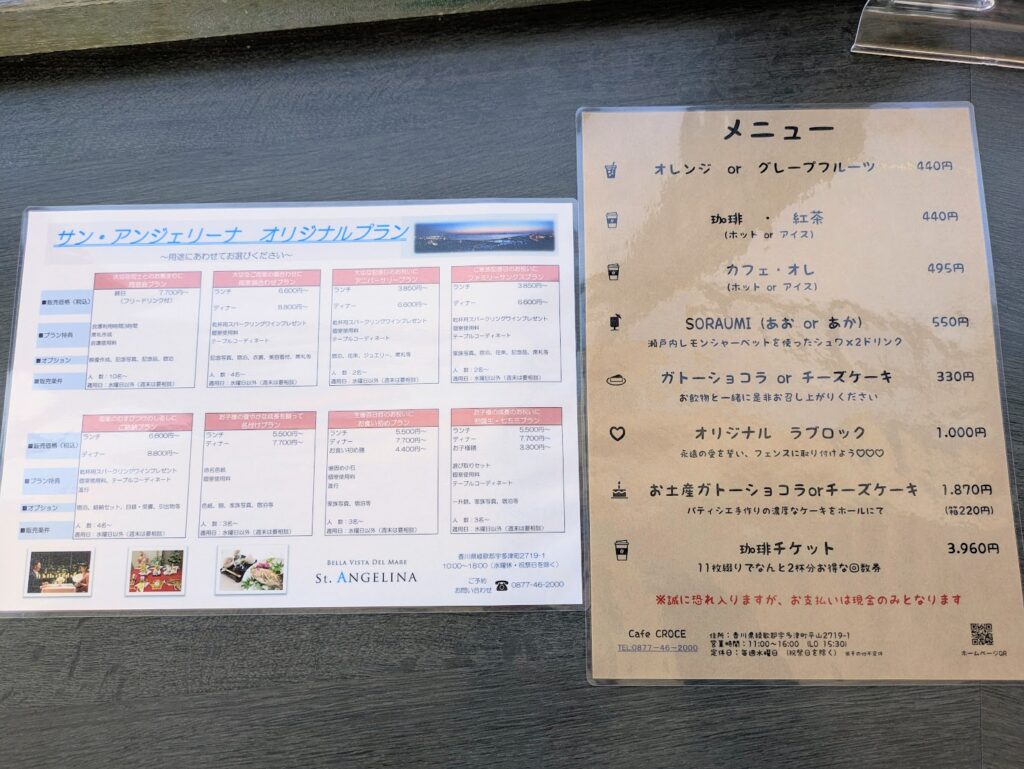 サン・アンジェリーナ オリジナルプラン
～用途にあわせてお選びください～
■販売価格（税込）
■プラン特典
■オプション
■販売条件
大切な同士とのお集まりに
同窓会プラン
終日 7,700円～
（フリードリンク付）
会場利用時間3時間
席札作成
会場使用料
映像作成、記念写真、記念品、宿泊
人 数：10名～
適用日：水曜日以外（週末は要相談）
大切なご両家の顔合わせに
両家顔合わせプラン
ランチ 6,600円～
ディナー 8,800円～
乾杯用スパークリングワインプレゼント
個室使用料
テーブルコーディネート
記念写真、宿泊、衣裳、美容着付、席札等
人 数：4名～
適用日：水曜日以外（週末は要相談）
大切な記念日のお祝いに
アニバーサリープラン
ランチ 3,850円～
ディナー 6,600円～
乾杯用スパークリングワインプレゼント
個室使用料
テーブルコーディネート
宿泊、花束、ジュエリー、席札等
人 数：2名～
適用日：水曜日以外（週末は要相談）
ご家族記念日のお祝いに
ファミリーサンクスプラン
ランチ 3,850円～
ディナー 6,600円～
乾杯用スパークリングワインプレゼント
個室使用料
テーブルコーディネート
家族写真、宿泊、花束、記念品、席札等
人 数：2名～
適用日：水曜日以外（週末は要相談）
■販売価格（税込）
■プラン特典
■オプション
■販売条件
両家のむすびつけのしるしに
ご結納プラン
ランチ 6,600円～
ディナー 8,800円～
乾杯用スパークリングワインプレゼント
個室使用料、テーブルコーディネート
進行
宿泊、結納セット、目録・受書、引出物等
人 数：4名～
適用日：水曜日以外（週末は要相談）
お子様の健やかな成長を願って
名付けプラン
ランチ 5,500円～
ディナー 7,700円～
命名色紙
個室使用料
色紙、額、家族写真、宿泊等
人 数：3名～
適用日：水曜日以外（週末は要相談）
生後百日匹のお祝いに
お食い初めプラン
ランチ 5,500円～
ディナー 7,700円～
お食い初め膳 4,400円～
歯固め小石
個室使用料
進行
家族写真、宿泊等
人 数：3名～
適用日：水曜日以外（週末は要相談）
お子様の成長のお祝いに
お誕生・七五三プラン
ランチ 5,500円～
ディナー 7,700円～
お子様膳 3,300円～
選び取りセット
個室使用料
テーブルコーディネート
一升餅、家族写真、宿泊等
人 数：3名～
適用日：水曜日以外（週末は要相談）
BELLA VISTA DEL MARE
ST. ANGELINA
香川県綾歌郡宇多津町2719-1
10:00～18:00（水曜休・祝祭日を除く）
ご予約
お問い合わせ ☎ 0877-46-2000
メニュー
オレンジ or グレープフルーツ 440円
珈琲 ・ 紅茶 440円
(ホット or アイス)
カフェ・オレ 495円
(ホット or アイス)
SORAUMI (あお or あか) 550円
瀬戸内レモンシャーベットを使ったシュワ×2ドリンク
ガトーショコラ or チーズケーキ 330円
お飲物と一緒に是非お召し上がりください
オリジナル ラブロック 1.000円
永遠の愛を誓い、フェンスに取り付けよう♡♡♡
お土産ガトーショコラorチーズケーキ 1.870円
パティシエ手作りの濃厚なケーキをホールにて (箱220円)
珈琲チケット 3.960円
11枚綴りでなんと2杯分お得な回数券
※誠に恐れ入りますが、お支払いは現金のみとなります
Cafe CROCE
TEL:0877-46-2000
住所：香川県綾歌郡宇多津町平山2719-1
営業時間：11:00～16:00 (LO 15:30)
定休日：毎週水曜日 (祝祭日を除く)
ホームページQR